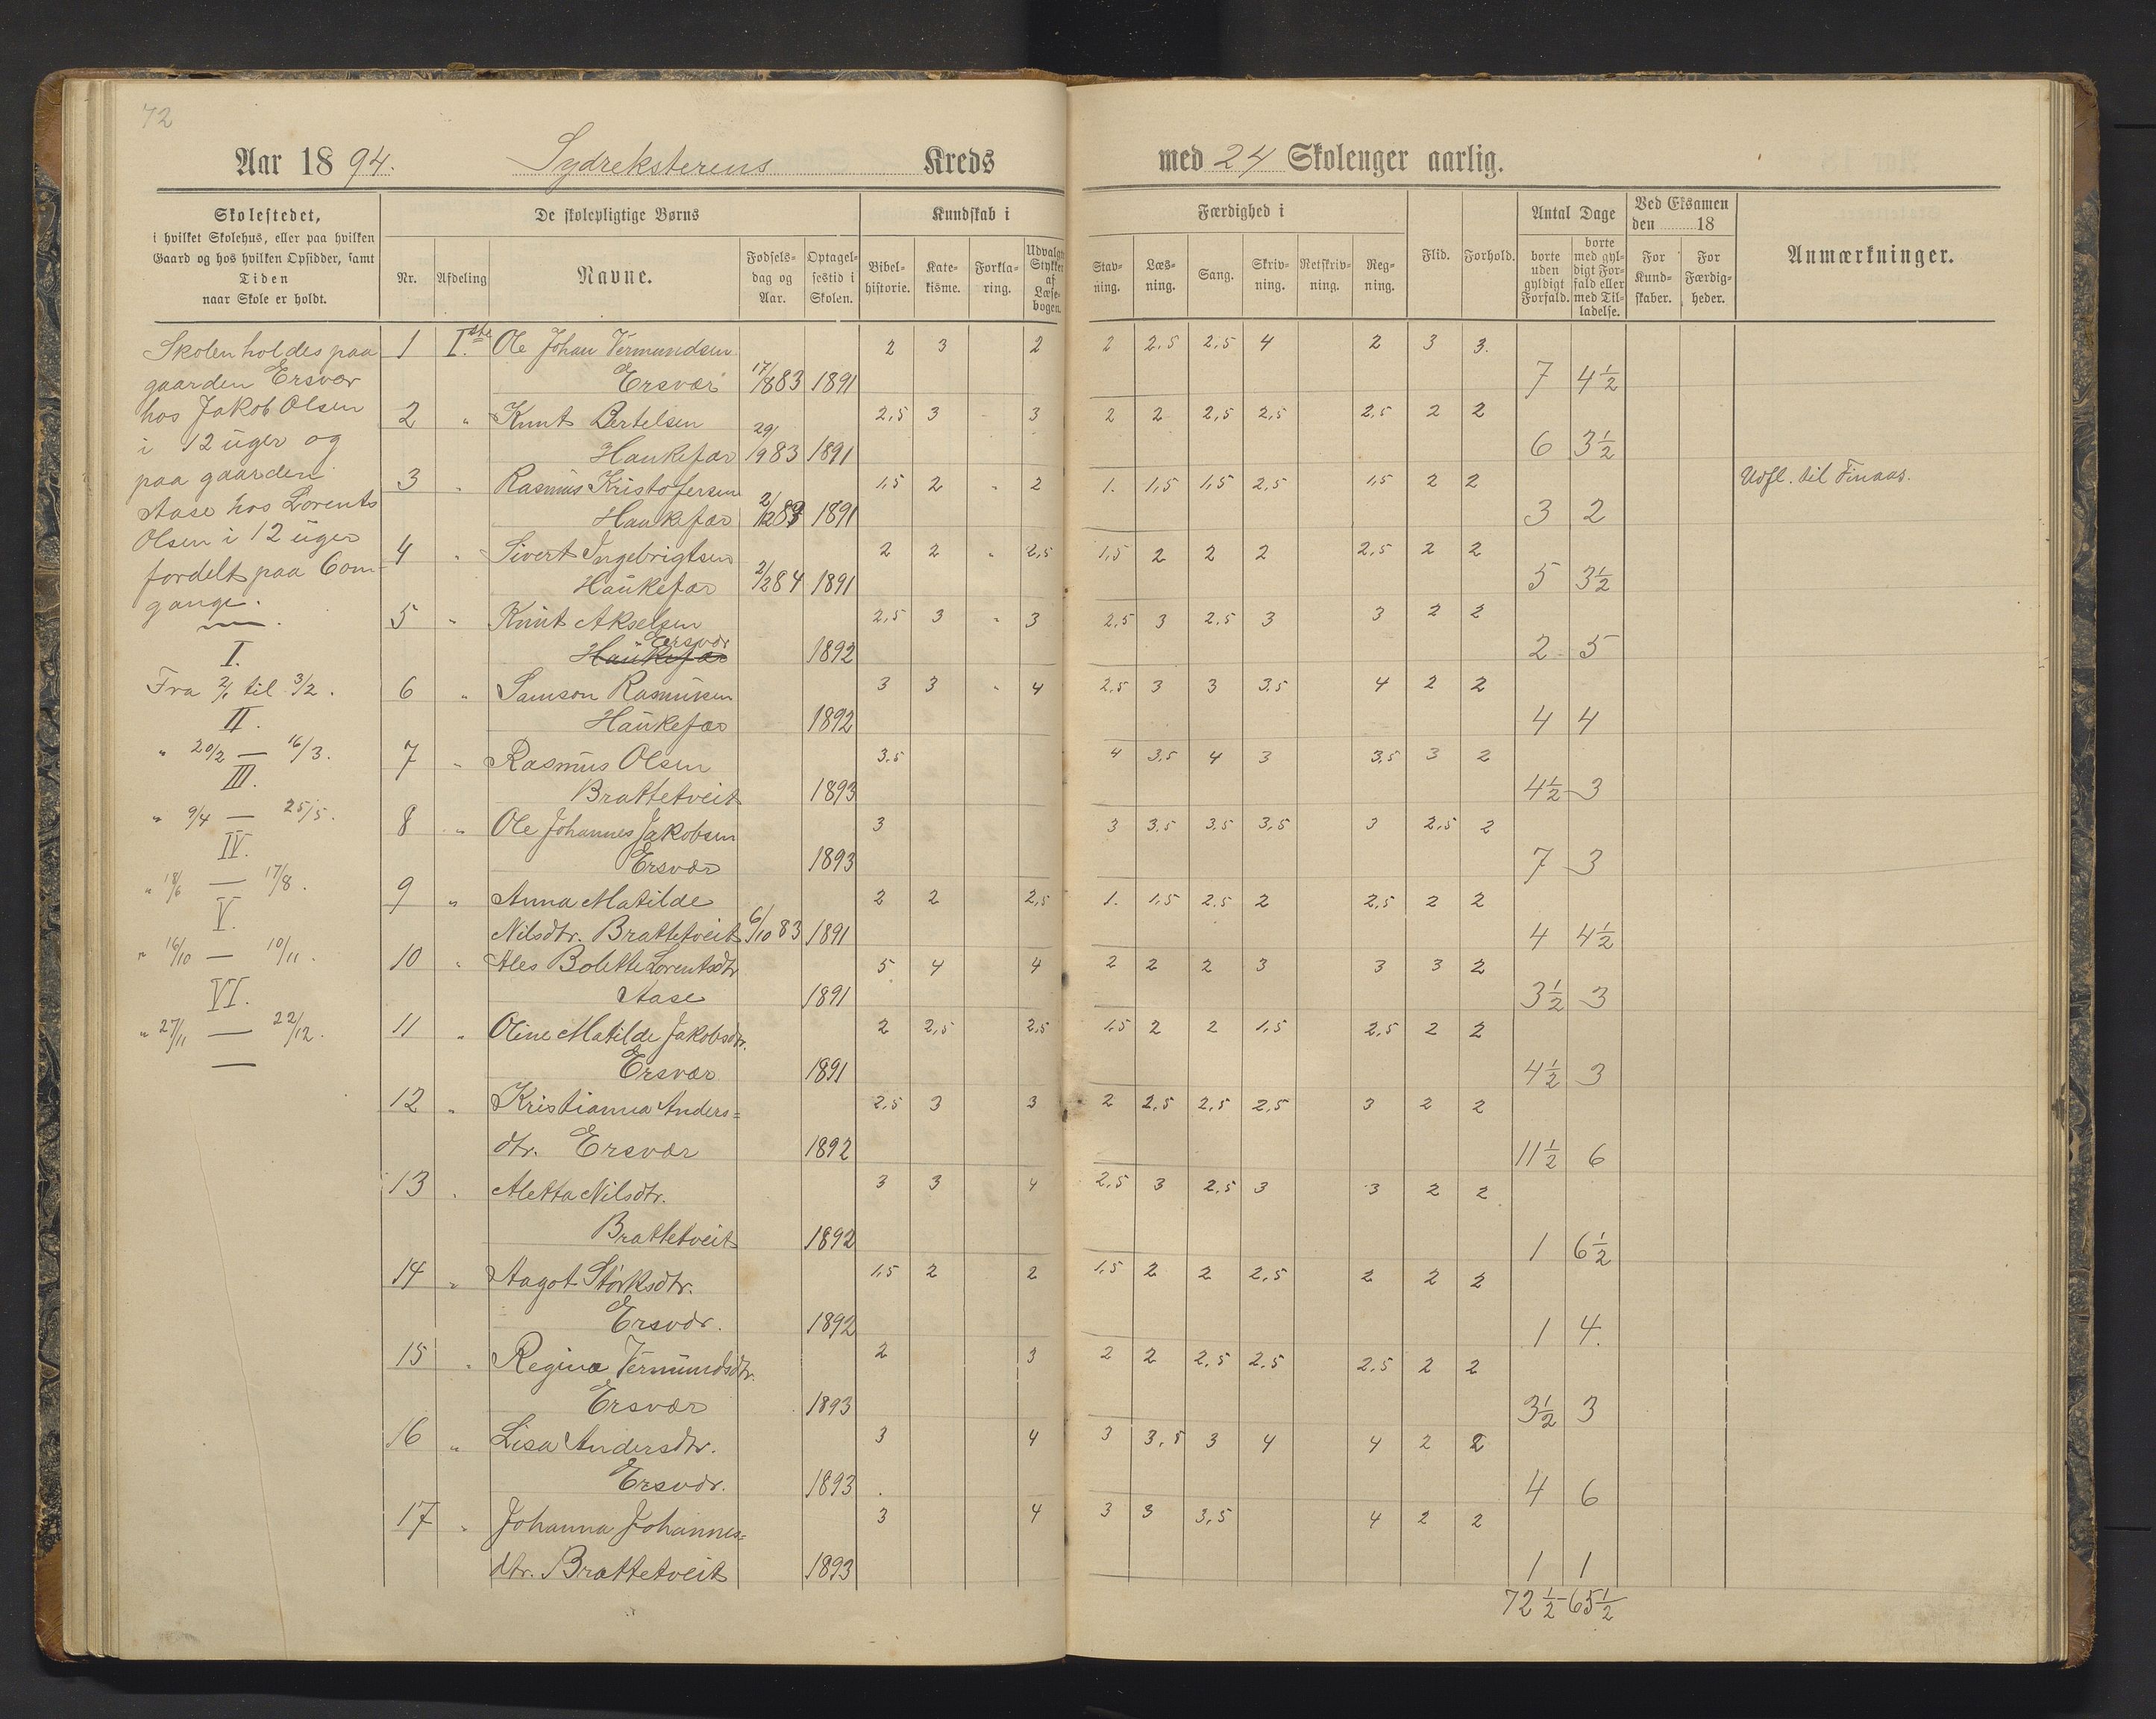 72
Aar 1894. Sydreksterens Kreds med 24 Skoleuger aarlig.
Skolestedet,
i hvilket Skolehus, eller paa hvilken
Gaard og hos hvilken Opsidder, samt
Tiden
naar Skole er holdt.
De skolepligtige Børns
Nr. Afdeling Navne. Fødsels-dag og Aar. Optagel-sestid i Skolen.
Kundskab i
Bibel-historie. Kate-kisme. Forkla-ring. Udvalgte Stykker af Læse-bogen.
Færdighed i
Stav-ning. Læs-ning. Sang. Skriv-ning. Retskriv-ning. Reg-ning.
Flid. Forhold.
Antal Dage
borte uden gyldigt Forfald. borte med gyl-digt For-fald eller med Til-ladelse.
Ved Eksamen
den 18
For Kund-skaber. For Færdig-heder.
Anmærkninger.
Skolen holdes paa
gaarden Ersvær
hos Jakob Olsen
i 12 uger og
paa gaarden
Aase hos Lorents
Olsen i 12 uger
fordelt paa 6 om-
gange.
I.
Fra 2/1 til 3/2.
II.
" 20/2 — 16/3.
III.
" 9/4 — 25/5.
IV.
" 18/6 — 17/8.
V.
" 16/10 — 10/11.
VI.
" 27/11 — 22/12.
1 I.ste Ole Johan Vermundsen 2 3 2 2 2.5 2.5 4 2 3 3.
Ersvær 17/8 83 1891 7 4½
2 " Knut Bertelsen 2,5 3 3 2 2 2,5 2,5 2,5 2 2
Haukefær 29/9 83 1891 6 3½
3 " Rasmus Kristofersen 1,5 2 " 2 1. 1,5 1,5 2,5 1,5 2 2 Udfl. til Finaas.
Haukefær 2/12 83 1891 3 2
4 " Sivert Ingebrigtsen 2 2 " 2,5 1,5 2 2 2 2,5 2 2
Haukefær 2/2 84 1891 5 3½
5 " Knut Akselsen 2,5 3 " 3 2,5 3 2,5 3 3 2 2
Ersvær
Haukefær 1892 2 5
6 " Samson Rasmussen 3 3 " 4 2,5 3 3 3,5 4 2 2
Haukefær 1892 4 4
7 " Rasmus Olsen 3,5 4 3,5 4 3 3,5 3 2
Brattetveit 1893 4½ 3
8 " Ole Johannes Jakobsen 3 3 3,5 3,5 3,5 3 2,5 2
Ersvær 1893 7 3
9 " Anna Matilde 2 2 2,5 1. 1,5 2,5 2 2,5 2 2
Nilsdtr. Brattetveit 6/10 83 1891 4 4½
10 " Ales Bolette Lorentsdtr 5 4 4 2 2 2 3 3 3 2
Aase 1891 3½ 3
11 " Oline Matilde Jakobsdtr. 2 2,5 2,5 1,5 2 2 1,5 2,5 2 2
Ersvær 1891 4½ 3
12 " Kristianna Anders= 2,5 3 3 2 2,5 2,5 2,5 3 2 2
dtr. Ersvær 1892 11½ 6
13 " Aletta Nilsdtr. 3 3 4 2,5 3 2,5 3 3 2 2
Brattetveit 1892 1 6½
14 " Aagot Størksdtr. 1,5 2 2 1,5 2 2 2,5 2 2 2
Ersvær. 1892 1 4.
15 " Regina Vermundsdtr. 2 3 2 2 2,5 2,5 2,5 2 2
Ersvær 1893 3½ 3
16 " Lisa Andersdtr. 3 4 3 3,5 3 4 4 2 2
Ersvær. 1893 4 6
17 " Johanna Johannes= 3 4 3 3 3,5 4 2 2
dtr. Brattetveit 1893 1 1
72½ - 65½